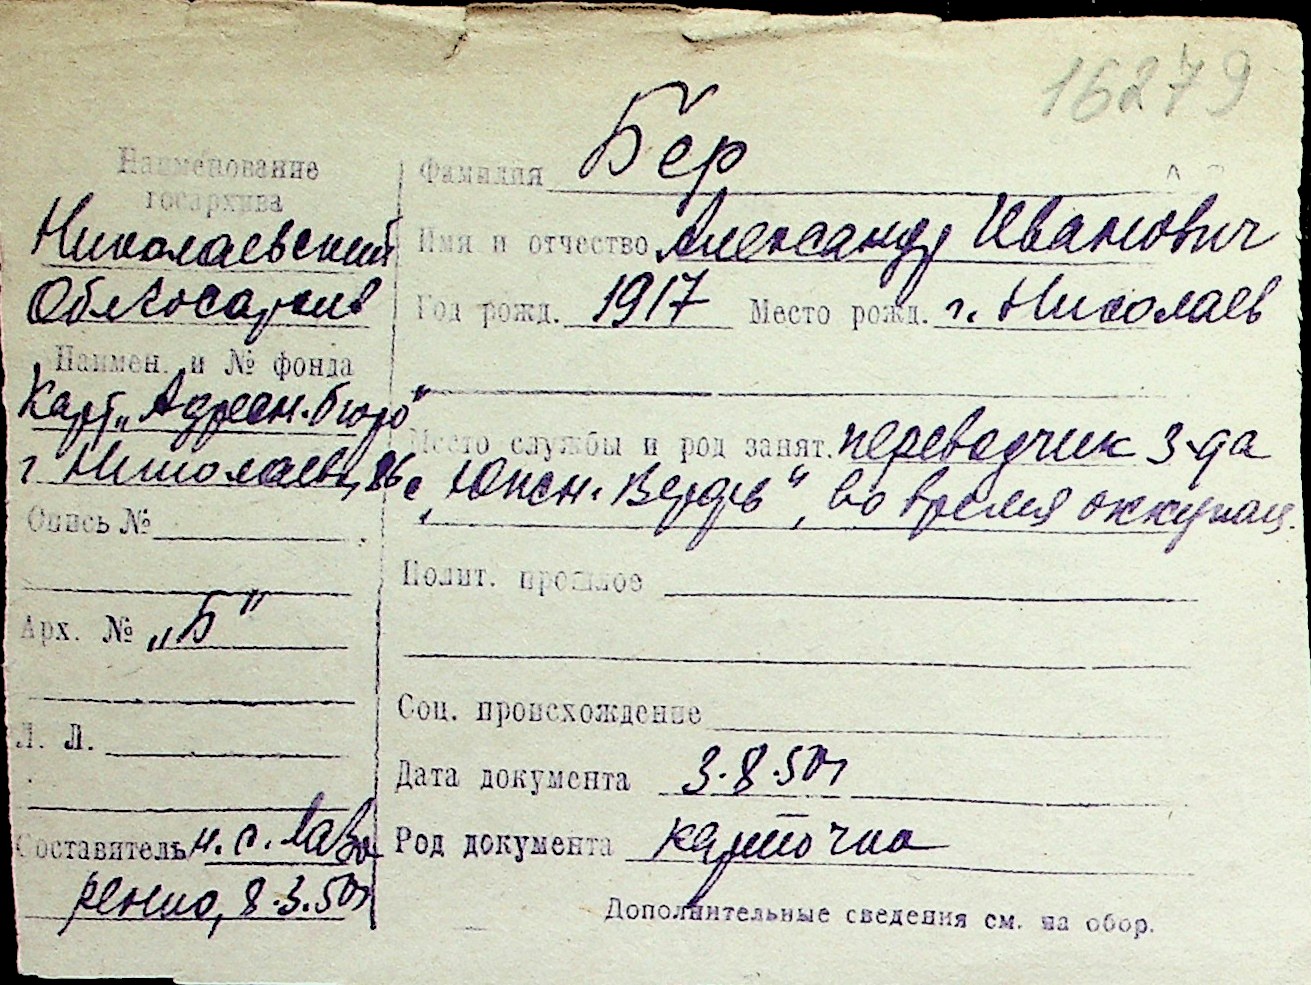 16279
Наименование
госархива
Николаевский
Облгосархив
Наимен. и № фонда
Карт. „Адресн. бюро"
г. Николаев,
Опись №
Арх. № „Б"
Л. Л.
Составитель н. с. Лавре
ренко, 8.3.50г
Фамилия Бер
Имя и отчество Александр Иванович
Год рожд. 1917 Место рожд. г. Николаев
Место службы и род занят. переводчик з-да
„Южн. Верфь", во время оккупац.
Полит. прошлое
Соц. происхождение
Дата документа 3.8.50г
Род документа карточка
Дополнительные сведения см. на обор.